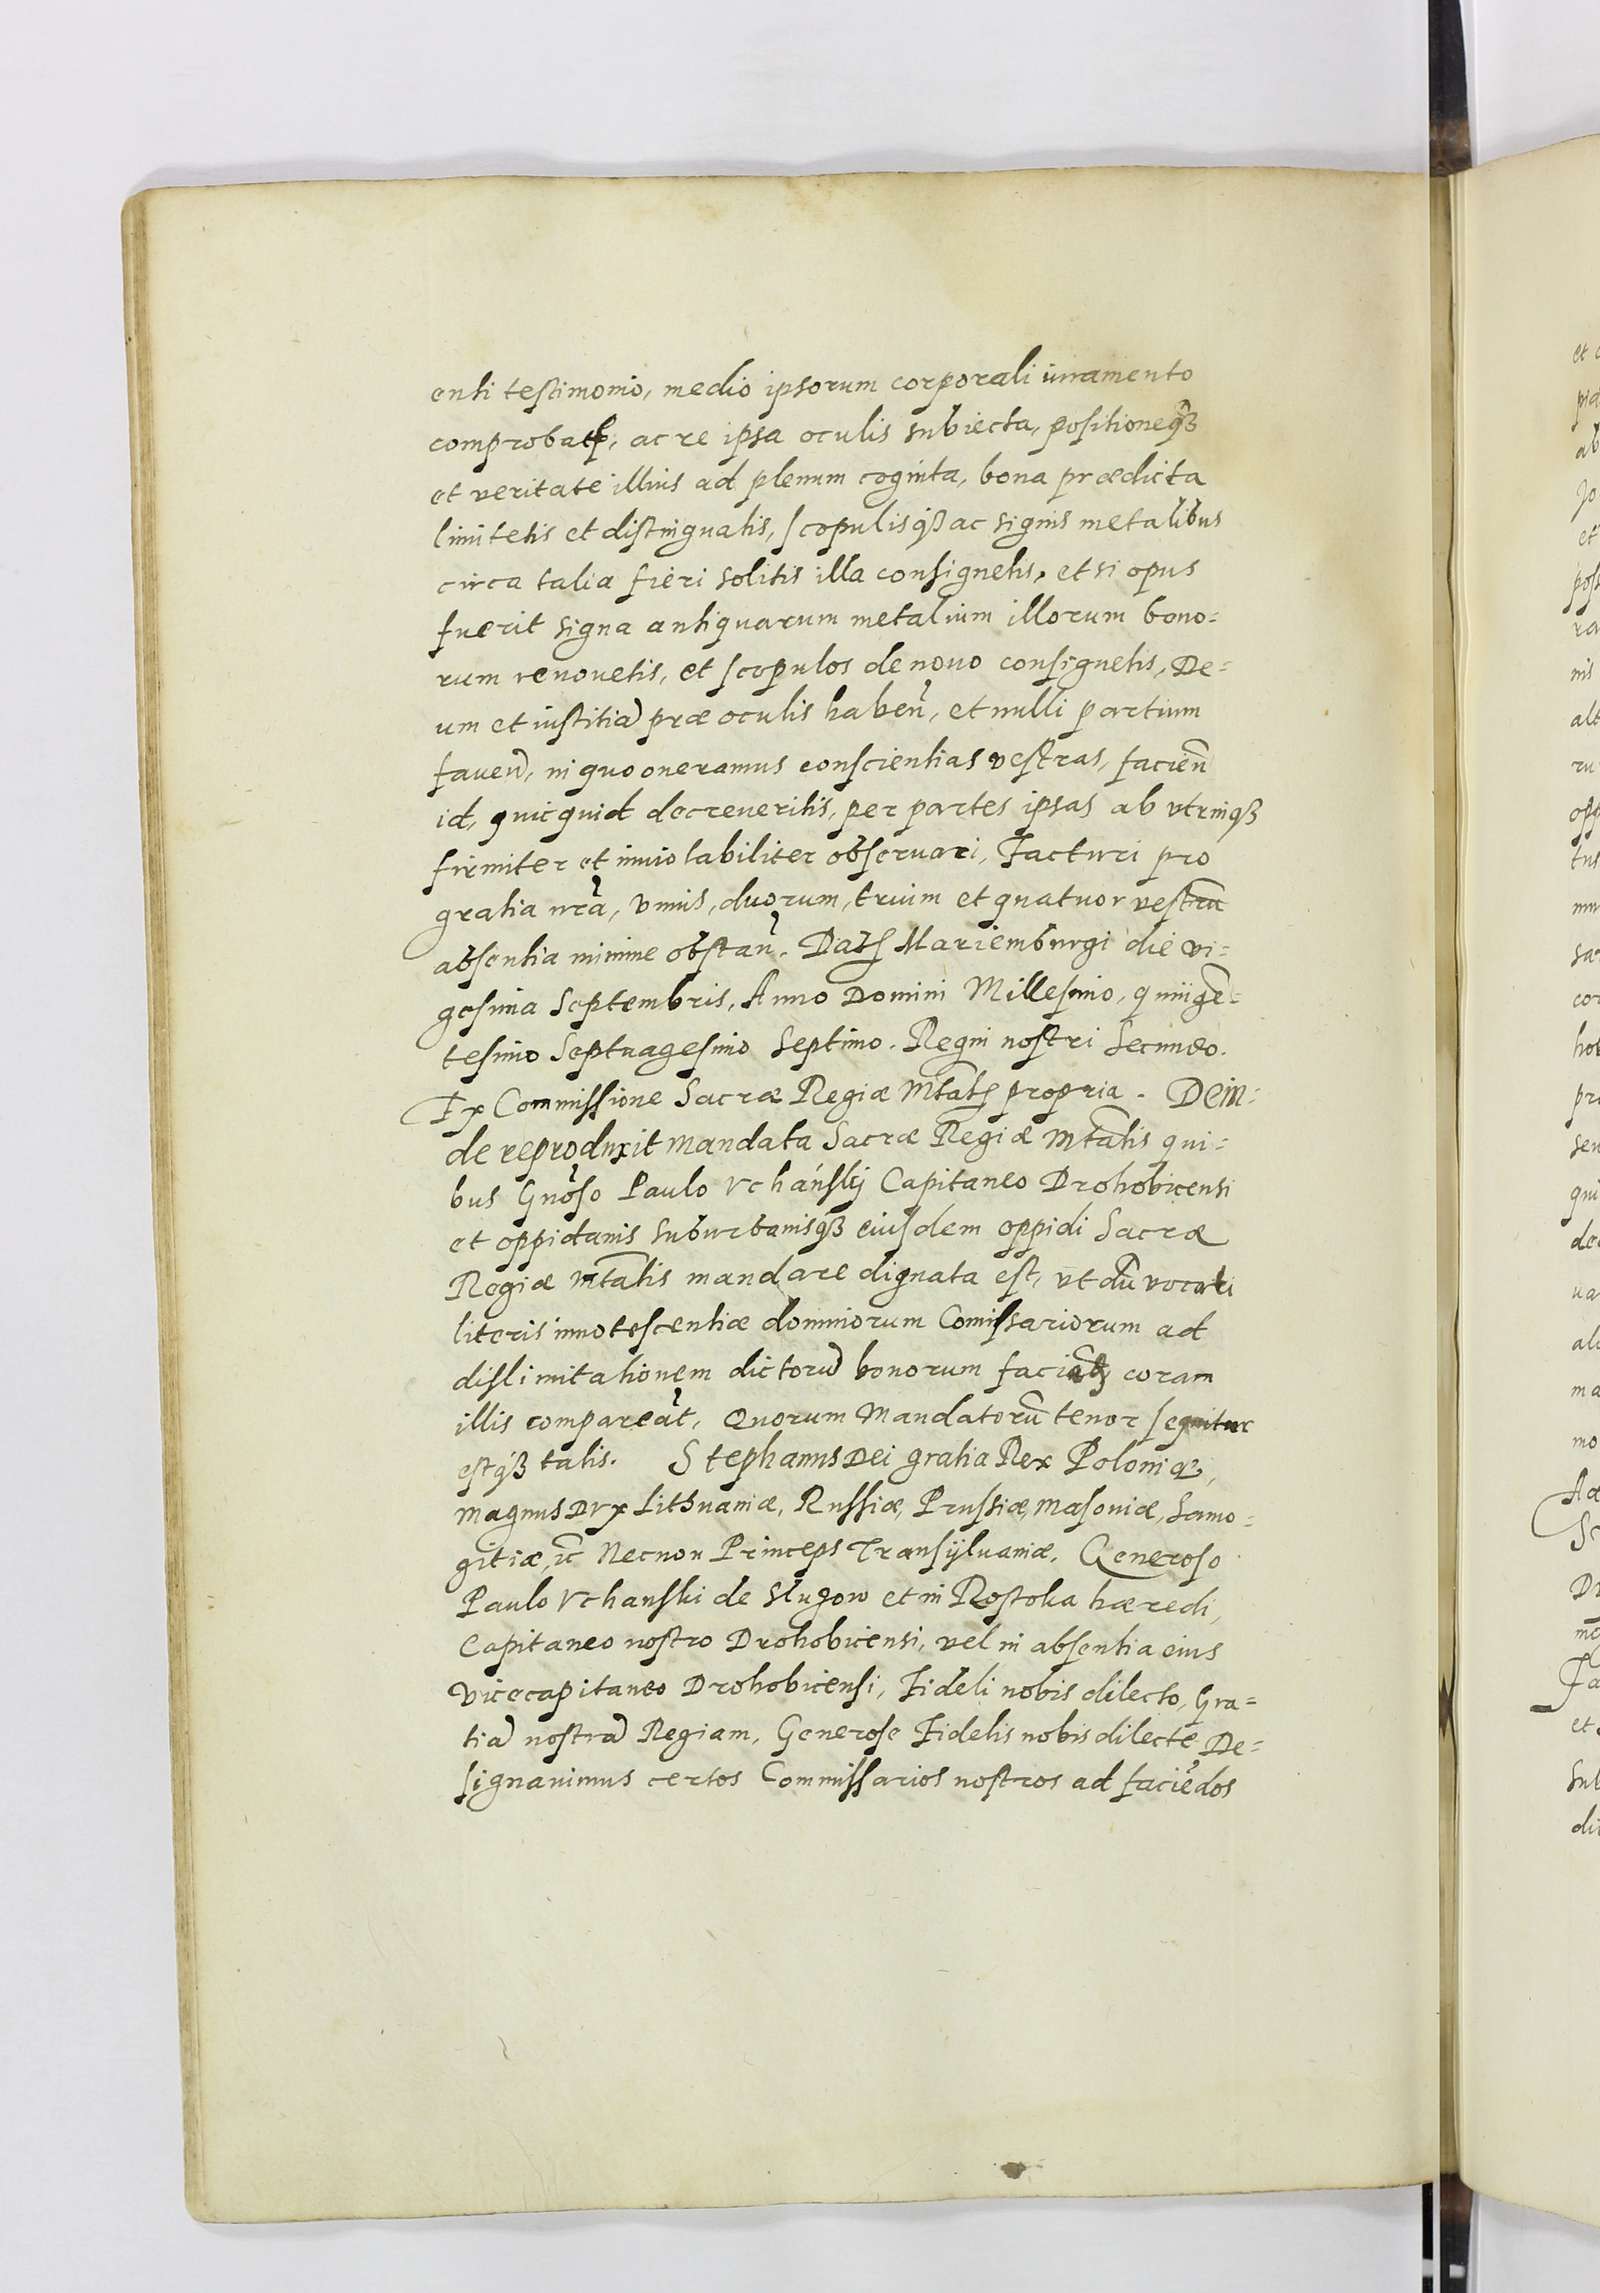 enti testimonio, medio ipsorum corporali iuramento
comprobatis, ac re ipsa oculis subiecta, positioneqȝ
et veritate illius ad plenum cognita, bona prædicta
limitetis et distinguatis, scopulisqȝ ac signis metalibus
circa talia fieri solitis illa consignetis, et si opus
fuerit signa antiquarum metalium illorum bono=
rum renouetis, et scopulos de nouo consignetis, De=
um et iustitiã præ oculis habeñ, et nulli partium
faueñ, in quo oneramus conscientias vestras, facieñ
id, quicquid decreueritis, per partes ipsas ab vtrinqȝ
firmiter et inuiolabiliter obseruari, Facturi pro
gratia nrã, vnius, duorum, trium et quatuor vestrũ
absentia minime obstañ. Datt Mariemburgi die vi=
gesima Septembris, Anno Domini Millesimo, quingẽ=
tesimo Septuagesimo Septimo. Regni nostri Secundo.
Ex Commissione Sacræ Regiæ Mtatis propria. Dein=
de reproduxit mandata Sacræ Regiæ Mtatis qui=
bus Gnoso Paulo Vcháńskij Capitaneo Drohobicensi
et oppidanis suburbanisqȝ eiusdem oppidi Sacræ
Regiæ Mtatis mandare dignata est, vt dũ vocati
literis innotescentiæ dominorum Comissariorum ad
dislimitationem dictorũ bonorum coram
illis compareãt, Quorum Mandatorũ tenor sequitur
estqȝ talis. Stephanus Dei gratia Rex Poloniæ,
Magnus Dux Lithuaniæ, Russiæ, Prussiæ, Masouiæ, Samo=
gitiæ, ĩc Necnon Princeps Transijluaniæ. Generoso
Paulo Vchanski de Slugow et in Rostoka hæredi,
Capitaneo nostro Drohobicensi, vel in absentia eius
Vicecapitaneo Drohobicensi, Fideli nobis dilecto, Gra=
tiã nostrã Regiam, Generose Fidelis nobis dilecte, De=
signauimus certos Commissarios nostros ad faciẽdos